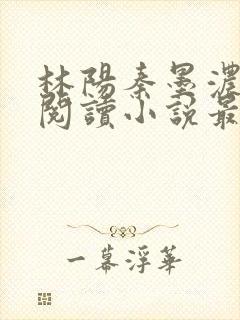 林陽秦墨濃
閱讀小說最
一幕浮華